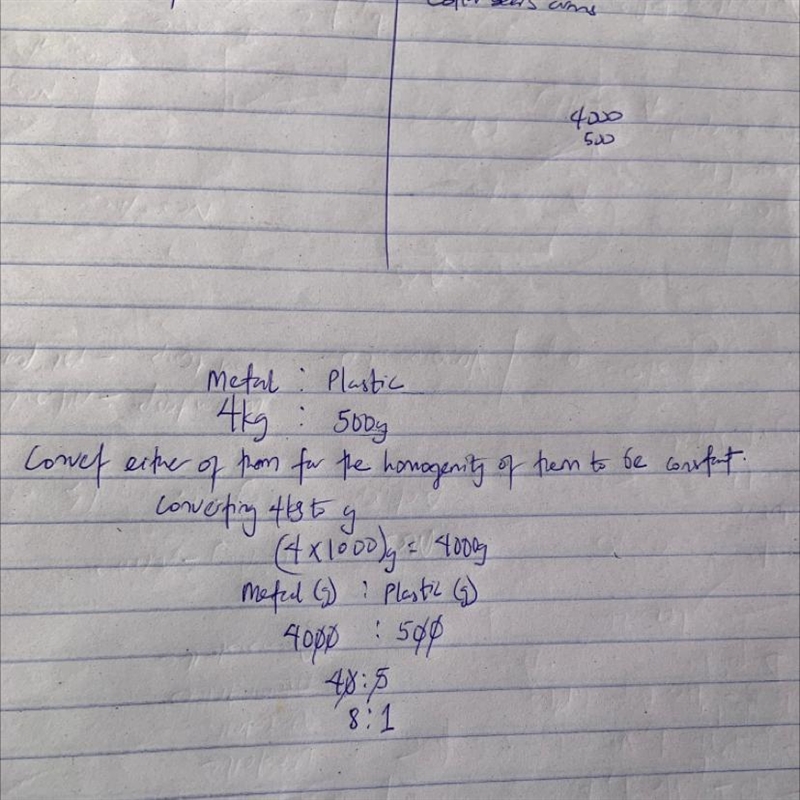 4000
500
Metal : Plastic
4kg : 500g
Convert either of them for the homogenity of them to be constant.
Converting 4kg to g
(4 x 1000)g = 4000g
Metal (g) : Plastic (g)
4000 : 500
40 : 5
8 : 1